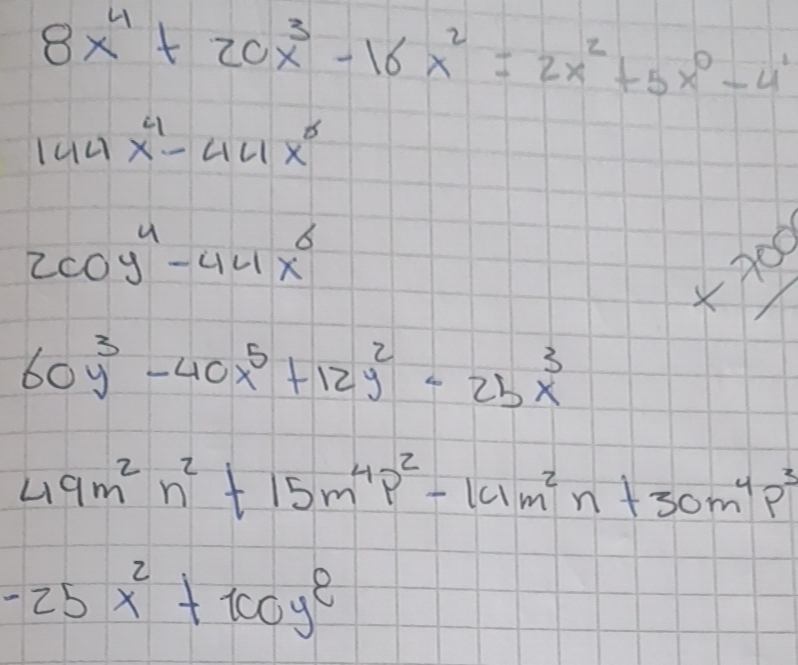 8x⁴ + 20x³ - 16x² = 2x² + 5x⁰ - 4¹
144x⁴ - 44x⁶
200y⁴ - 44x⁶
x 200
60y³ - 40x⁵ + 12y² - 25x³
49m²n² + 15m⁴p² - 14m²n + 30m⁴p³
-25x² + 100y⁸